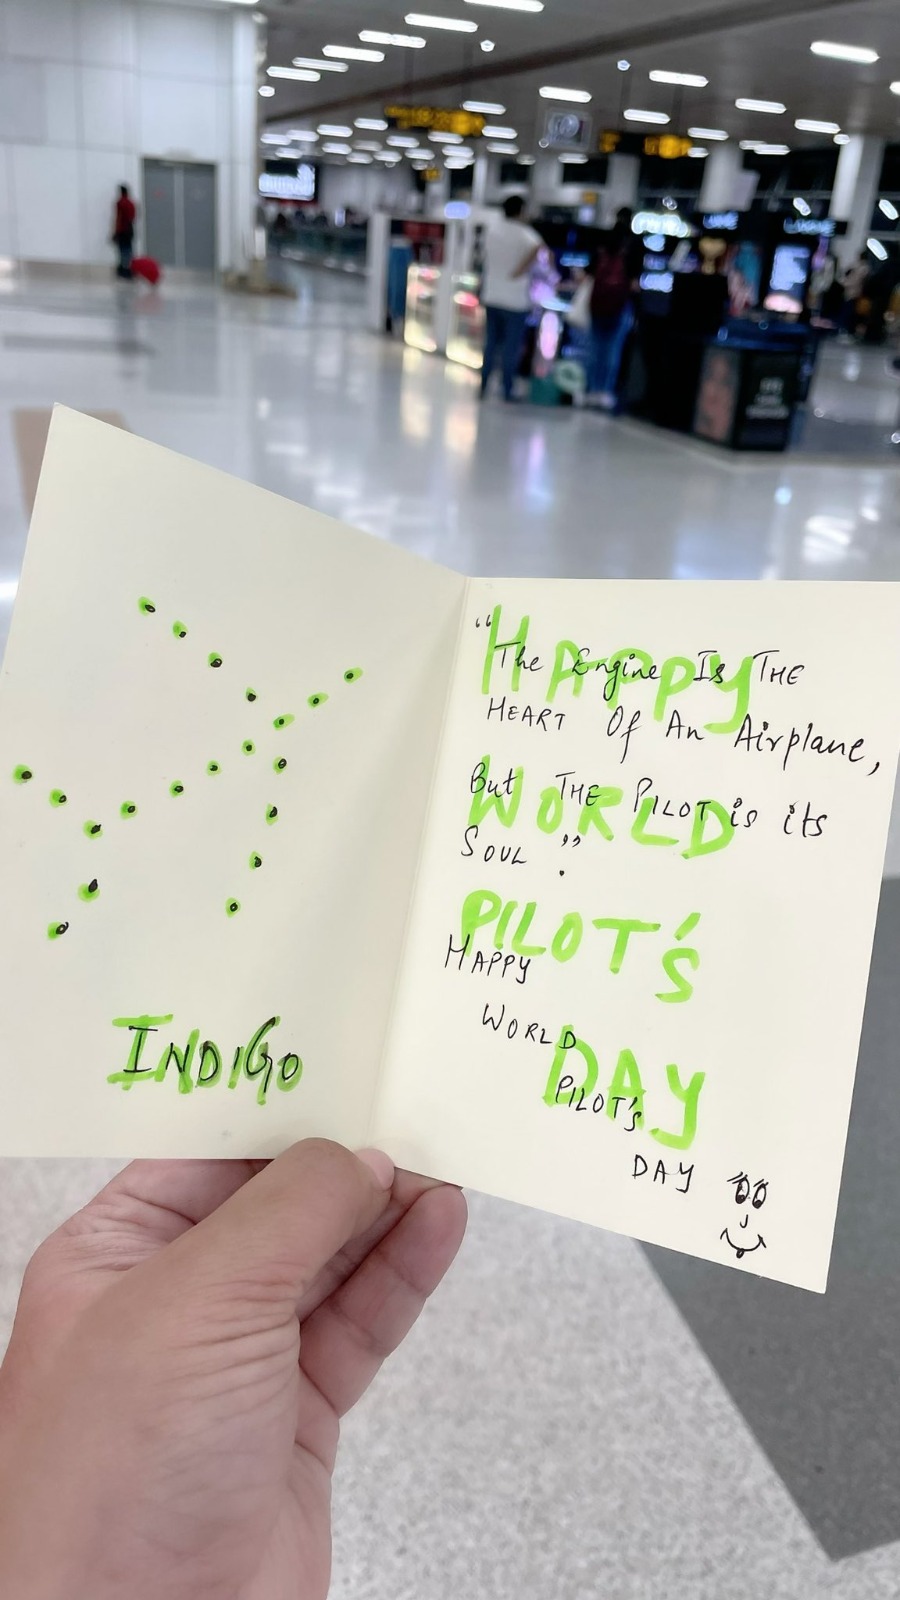 INDIGO
HAPPY
WORLD
PILOT'S
DAY
"The Engine Is THE
HEART Of An Airplane,
But THE PILOT is its
SOUL".
HAPPY
WORLD
PILOT'S
DAY